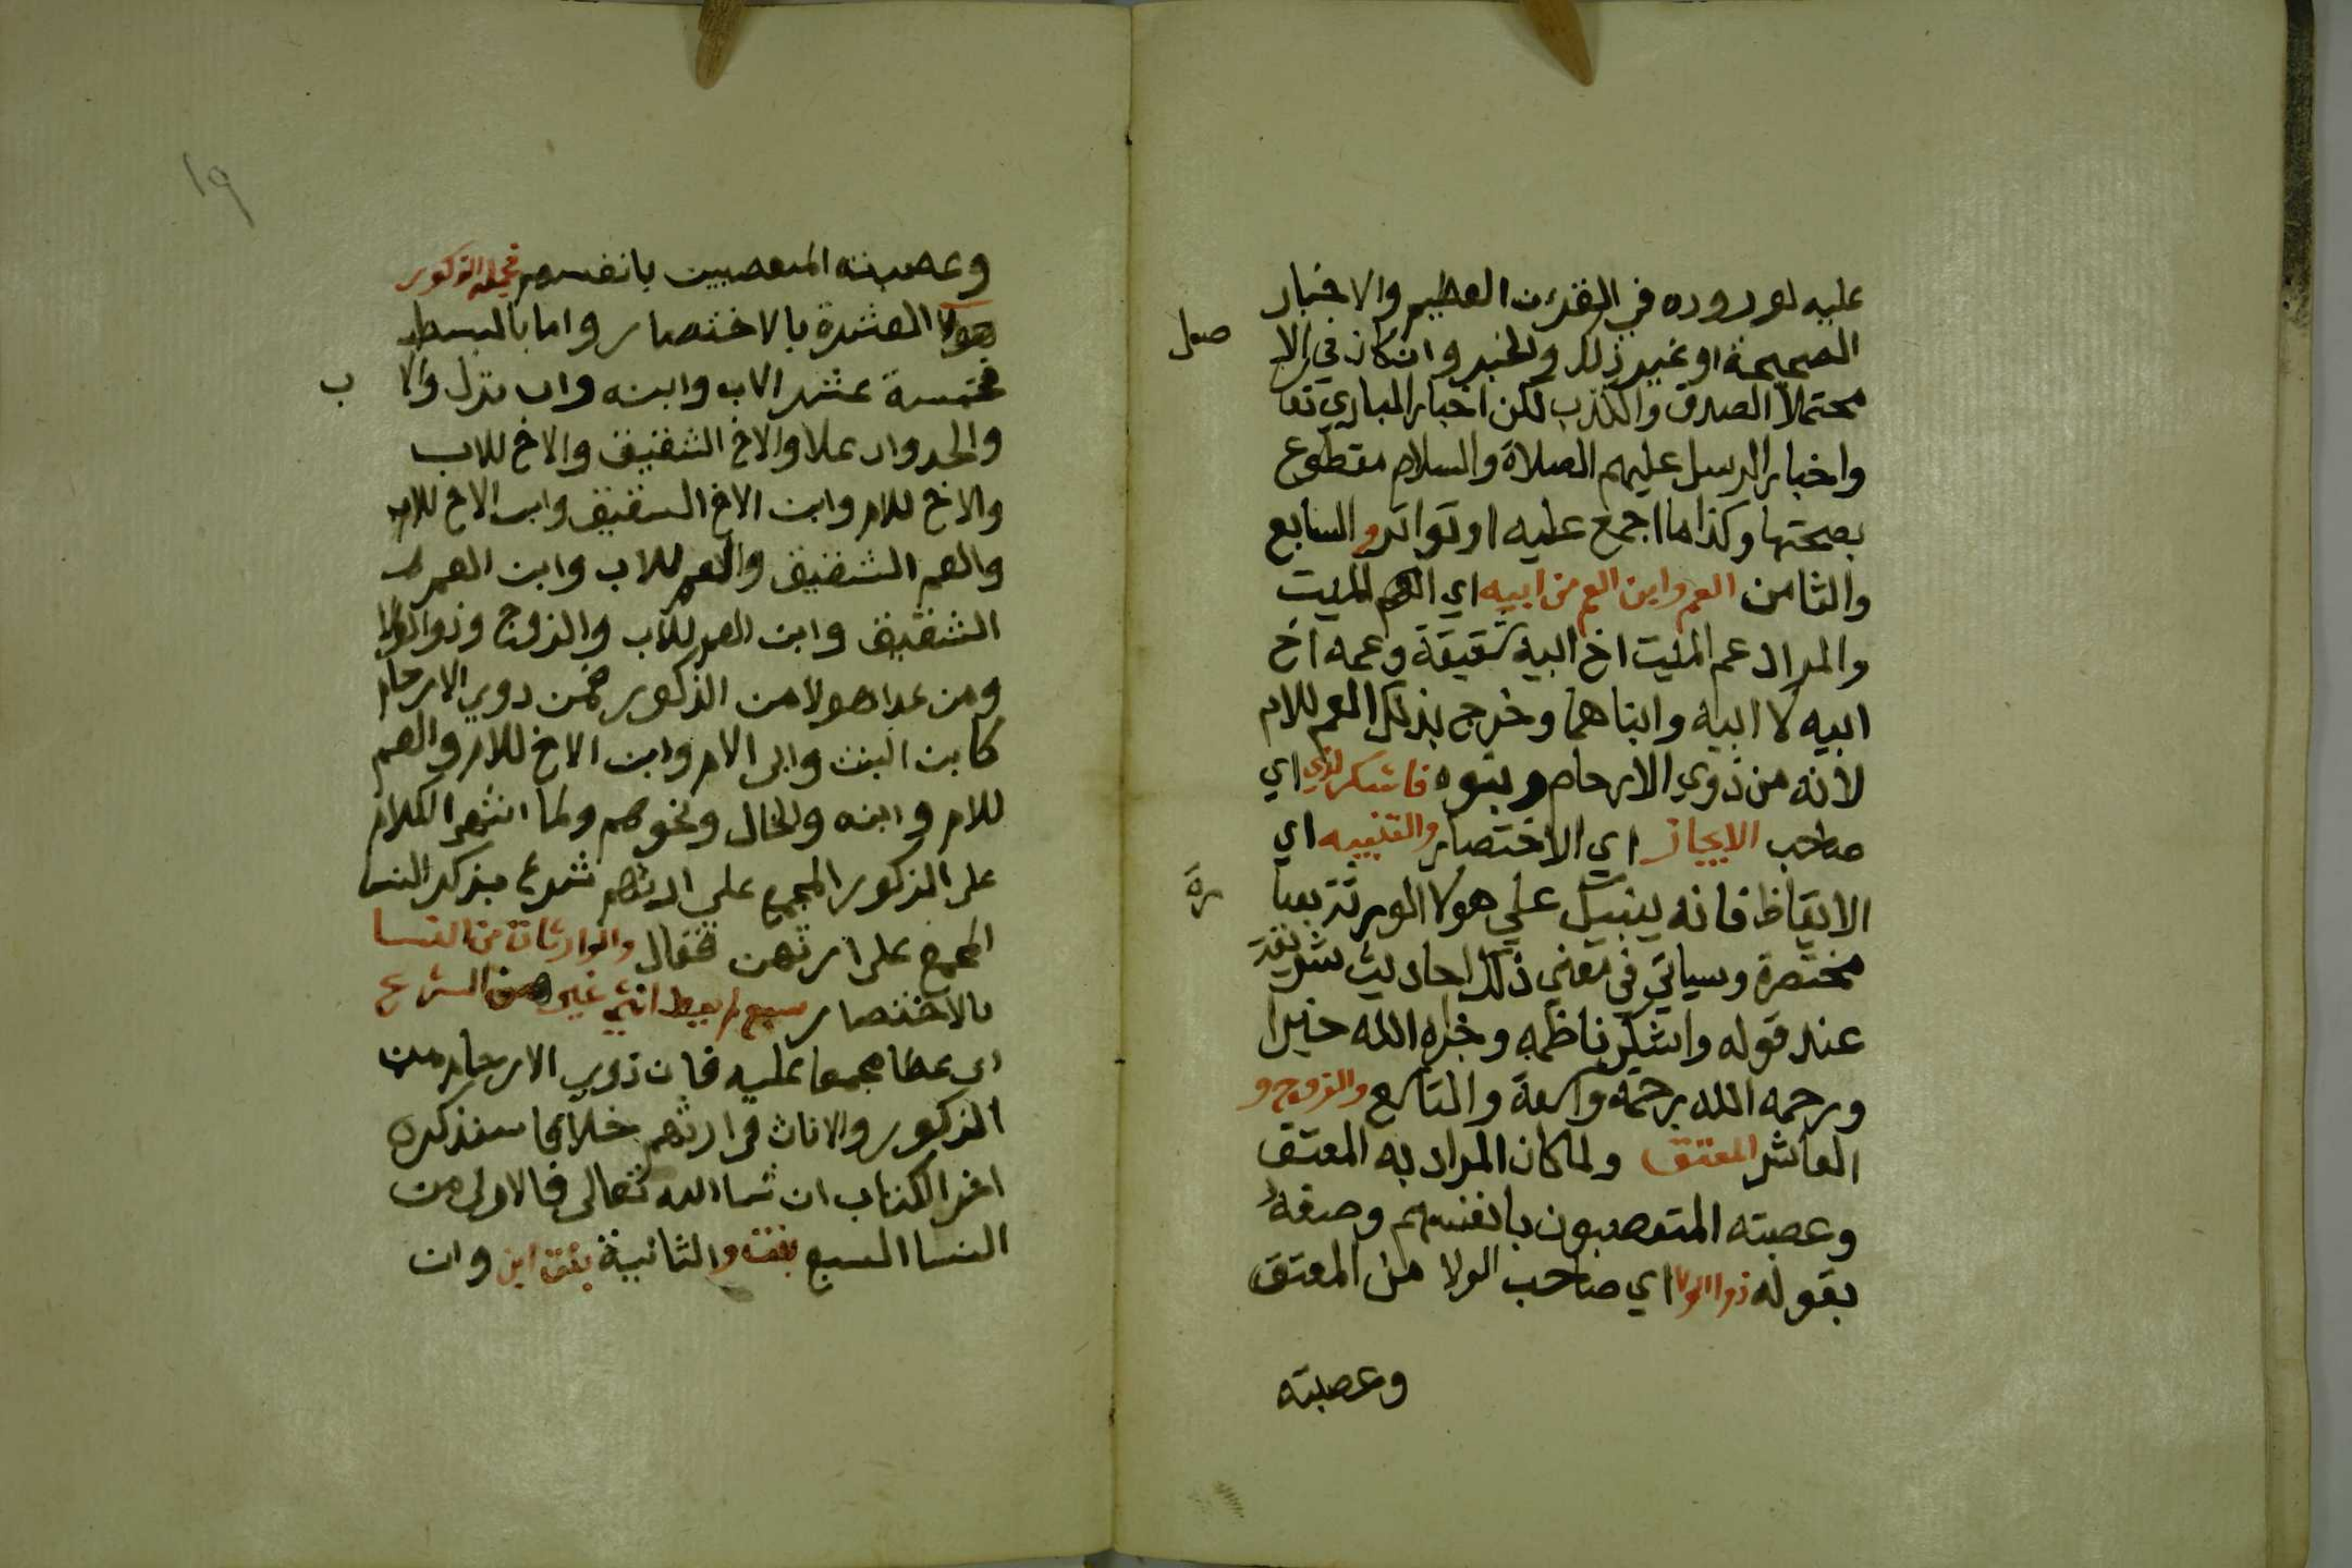 عليه لورووده في القرءن العظيم والاخبار
الصحيحة او غير ذلك والخبر وان كان في الا
صل
محتملا الصدق والكذب لكن اخبار الباري تعا
واخبار الرسل عليهم الصلاة والسلام مقطوع
بصحتها وكذا ما اجمع عليه او تواتر والسابع
والثامن العم وابن العم من ابيه اي العم الميت
والمراد عم الميت اخ ابيه شقيقة وعمه اخ
ابيه لا ابيه وابناهما وخرج بذلك العم للام
لانه من ذوي الارحام وبنوه فاشكر لذي اي
صاحب الايجاز اي الاختصار والتنبيه اي
الايقاظ فانه ينبيك علي هولا الورثة بعبا
رة
مختصرة وسياتي في معني ذلك احاديث شريفة
عند قوله واشكر ناظمه وجزاه الله خيرا
ورحمه الله رحمة واسعة والتاسع والزوج و
العاشر المعتق ولما كان المراد به المعتق
وعصبته المتعصبون بانفسهم وصفه
بقوله ذو الولا اي صاحب الولا من المعتق
وعصبته
١٩
وعصبته المتعصبين بانفسهم فجملة الذكور
هولا العشرة بالاختصار واما بالبسط
فخمسة عشر الاب وابنه وان نزل والا
ب
والجد وان علا والاخ الشقيق والاخ للاب
والاخ للام وابن الاخ الشقيق وابن الاخ للاب
والعم الشقيق والعم للاب وابن العم
الشقيق وابن العم للاب والزوج وذو الولا
ومن عدا هولا من الذكور فمن ذوي الارحام
كابن البنت وابي الام وابن الاخ للام والعم
للام وابنه والخال ونحوهم ولما انتهي الكلام
علي الذكور المجمع علي ارثهم شرع بذكر النسا
المجمع علي ارثهن فقال والوارثات من النسا
بالاختصار سبع لم يعط انثي غيرهن الشرع
اي عطا مجمعا عليه فان ذوي الارحام من
الذكور والاناث في ارثهم خلاف سنذكره
اخر الكتاب ان شا الله تعالي فالاولي من
النسا السبع بنت والثانية بنت ابن وان